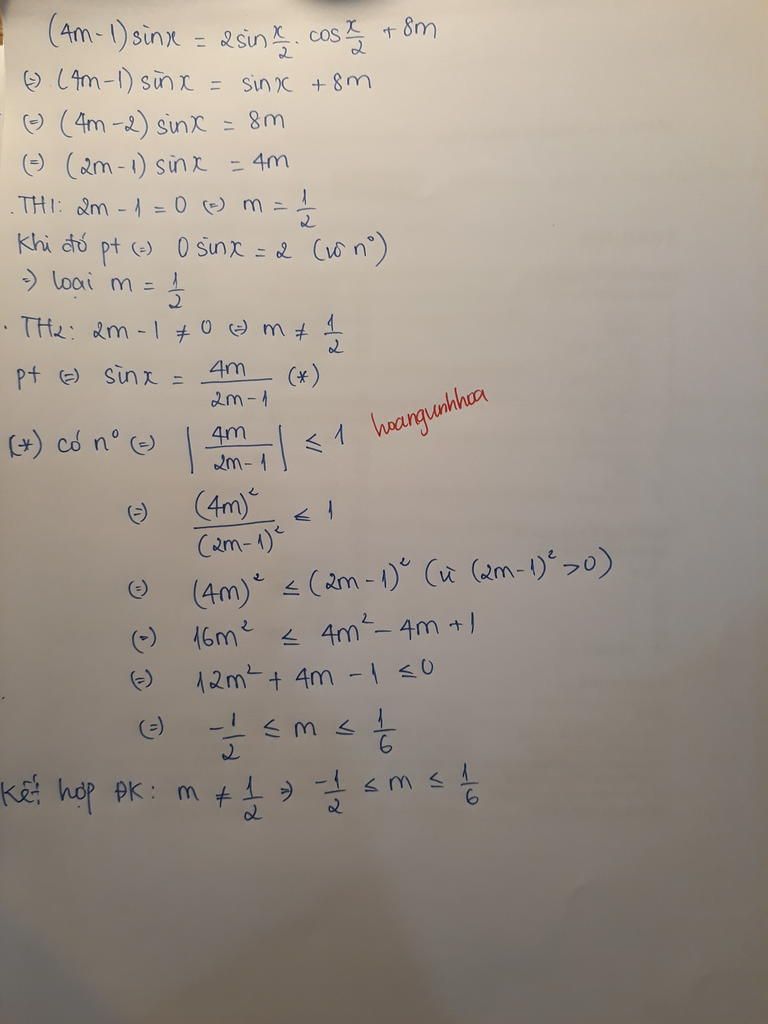 (4m-1) sinx = 2sin x/2 . cos x/2 + 8m
(=) (4m-1) sinx = sinx + 8m
(=) (4m-2) sinx = 8m
(=) (2m-1) sinx = 4m
. TH1: 2m - 1 = 0 (=) m = 1/2
Khi đó pt (=) 0 sinx = 2 (vô n°)
=) loại m = 1/2
. TH2: 2m - 1 ≠ 0 (=) m ≠ 1/2
pt (=) sinx = 4m/(2m-1) (*)
(*) có n° (=) |4m/(2m-1)| ≤ 1
hoangunhhoa
(=) (4m)²/(2m-1)² ≤ 1
(=) (4m)² ≤ (2m-1)² (vì (2m-1)² > 0)
(=) 16m² ≤ 4m² - 4m + 1
(=) 12m² + 4m - 1 ≤ 0
(=) -1/2 ≤ m ≤ 1/6
Kết hợp ĐK: m ≠ 1/2 =) -1/2 ≤ m ≤ 1/6